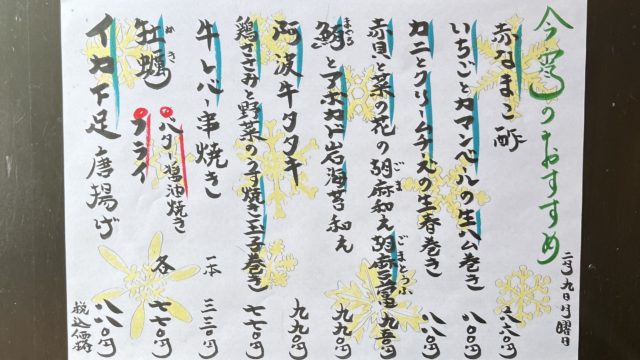 今宵のおすすめ
二月九日月曜日
赤なまこ酢 八八〇円
いちごとカマンベールの生ハム巻き 八八〇円
カニとクリームチーズの生春巻き 八八〇円
赤貝と菜の花の胡麻和え 胡麻豆腐 九五〇円
ごま
ごまどうふ
鮪とアボカド岩海苔和え 九九〇円
まぐろ
阿波牛タタキ 九九〇円
鶏ささみと野菜の串焼き玉子巻き 七七〇円
牛レバー串焼き 一本 三三〇円
牡蠣 バター醤油焼き フライ 各 七七〇円
かき
イカ下足唐揚げ 八八〇円
税込価格